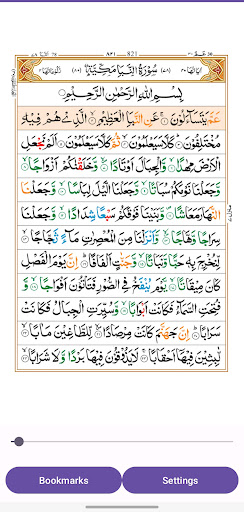 عَمَّ ٣٠
821
٨٢١
النبا ٧٨
سُوْرَةُ النَّبَاِ مَكِّيَّةٌ
بِسْمِ اللّٰهِ الرَّحْمٰنِ الرَّحِيْمِ
عَمَّ يَتَسَآءَلُوْنَ ۝١ عَنِ النَّبَاِ الْعَظِيْمِ ۝٢ الَّذِيْ هُمْ فِيْهِ
مُخْتَلِفُوْنَ ۝٣ كَلَّا سَيَعْلَمُوْنَ ۝٤ ثُمَّ كَلَّا سَيَعْلَمُوْنَ ۝٥ اَلَمْ نَجْعَلِ
الْاَرْضَ مِهٰدًا ۝٦ وَّالْجِبَالَ اَوْتَادًا ۝٧ وَّخَلَقْنٰكُمْ اَزْوَاجًا ۝٨
وَّجَعَلْنَا نَوْمَكُمْ سُبَاتًا ۝٩ وَّجَعَلْنَا الَّيْلَ لِبَاسًا ۝١٠ وَّجَعَلْنَا
النَّهَارَ مَعَاشًا ۝١١ وَّبَنَيْنَا فَوْقَكُمْ سَبْعًا شِدَادًا ۝١٢ وَّجَعَلْنَا
سِرَاجًا وَّهَّاجًا ۝١٣ وَّاَنْزَلْنَا مِنَ الْمُعْصِرٰتِ مَآءً ثَجَّاجًا ۝١٤
لِّنُخْرِجَ بِهٖ حَبًّا وَّنَبَاتًا ۝١٥ وَّجَنّٰتٍ اَلْفَافًا ۝١٦ اِنَّ يَوْمَ الْفَصْلِ
كَانَ مِيْقَاتًا ۝١٧ يَّوْمَ يُنْفَخُ فِي الصُّوْرِ فَتَاْتُوْنَ اَفْوَاجًا ۝١٨
وَّفُتِحَتِ السَّمَآءُ فَكَانَتْ اَبْوَابًا ۝١٩ وَّسُيِّرَتِ الْجِبَالُ فَكَانَتْ
سَرَابًا ۝٢٠ اِنَّ جَهَنَّمَ كَانَتْ مِرْصَادًا ۝٢١ لِّلطَّاغِيْنَ مَاٰبًا ۝٢٢
لّٰبِثِيْنَ فِيْهَآ اَحْقَابًا ۝٢٣ لَا يَذُوْقُوْنَ فِيْهَا بَرْدًا وَّلَا شَرَابًا ۝٢٤
Bookmarks
Settings